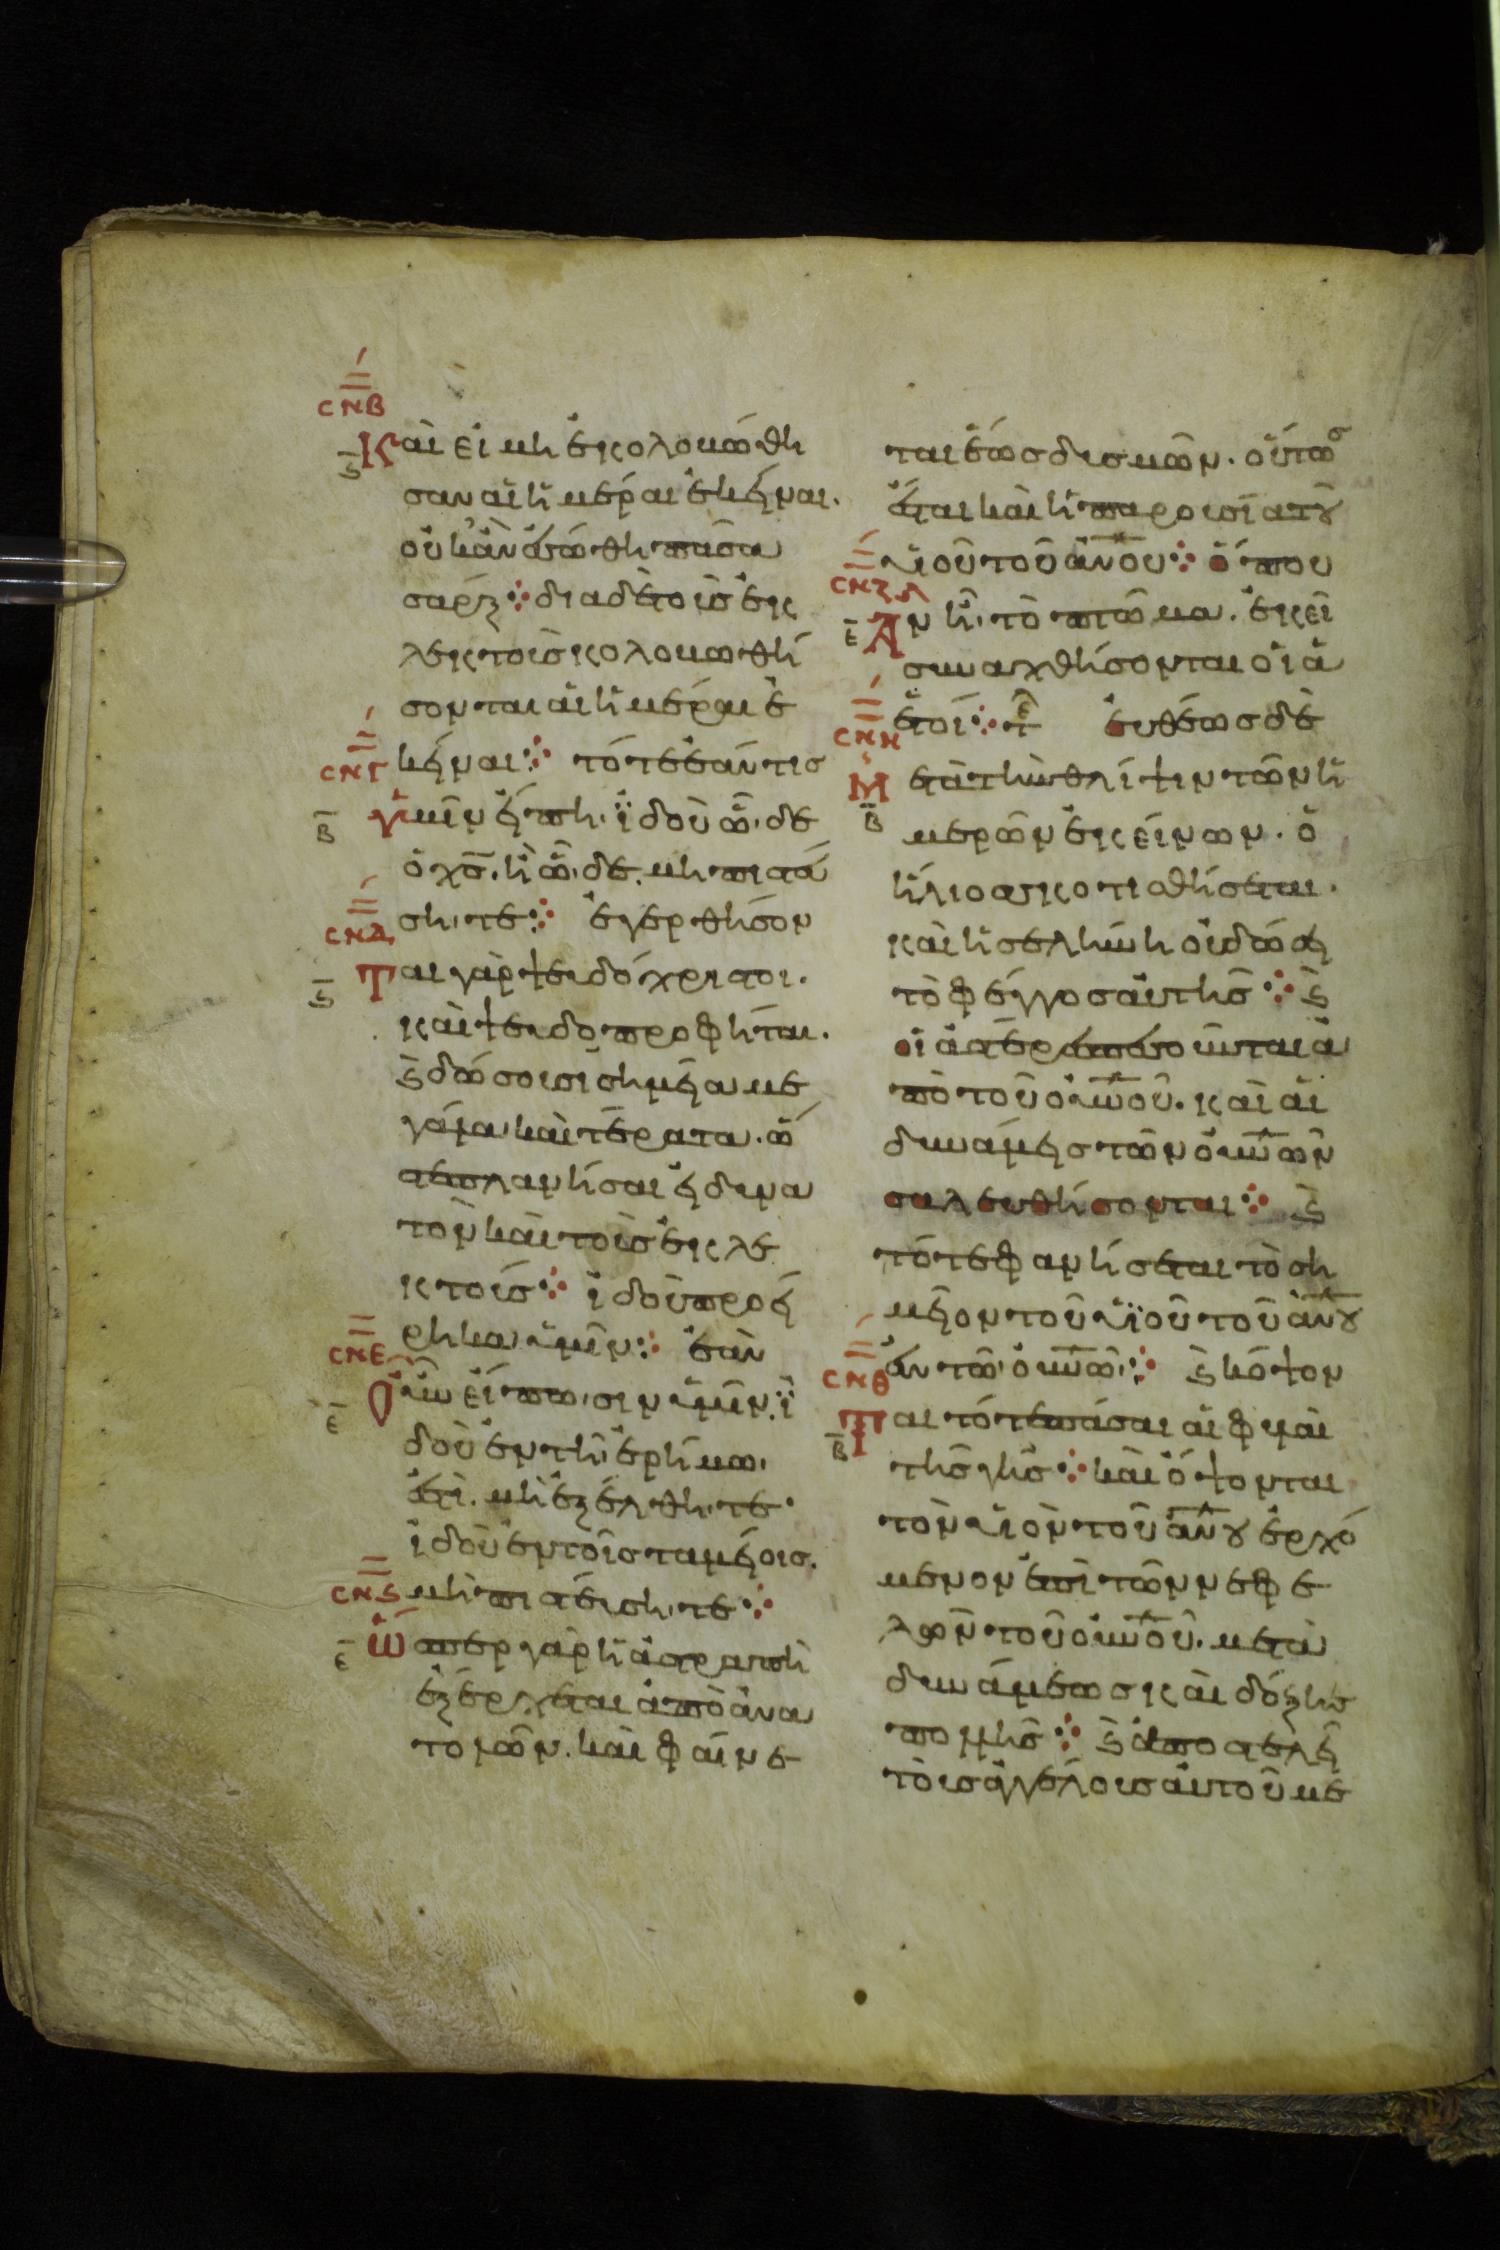 ϹΝΒ
Ϛ
Και εἰ μὴ ἐκολομώθη
σαν αἱ ἡμέραι ἐκείναι.
οὐκ ἂν ἐσώθη πᾶσα
σάρξ· διὰ δὲ τοὺς ἐκ
λεκτοὺς κολομωθή
σονται αἱ ἡμέραι ἐ
ϹΝΓ
κείναι· τότε ἐάν τις
Β
ὑμῖν εἴπη. ἰδοὺ ὧδε
ὁ χ̅ς̅. ἢ ὧδε. μὴ πιστεύ
ϹΝΔ
ση τε· ἐγερθήσον
Ϛ
Ται γὰρ ψευδόχριστοι.
καὶ ψευδοπροφῆται.
ϗ δώσουσι σημεῖα με
γάλα καὶ τέρατα. ὥ
στε πλανῆσαι εἰ δυνα
τὸν καὶ τοὺς ἐκλε
κτούς· ἰδοὺ προεί
ϹΝΕ
ρηκα ὑμῖν· ἐὰν
Ε
Οὖν εἴπωσιν ὑμῖν. ἰ
δοὺ ἐν τῆ ἐρήμω
ἐστὶ. μὴ ἐξέλθητε·
ἰδοὺ ἐν τοῖς ταμείοις.
ϹΝϚ
μὴ πιστεύσητε·
Ε
Ὥσπερ γὰρ ἡ ἀστραπὴ
ἐξέρχεται ἀπὸ ἀνα
τολῶν. καὶ φαίνε
ται ἕως δυσμῶν. οὕτως
ἔσται καὶ ἡ παρουσία τοῦ
υἱοῦ τοῦ ἀν̅ου· ὅπου
ϹΝΖ
Ε
Ἂν ἦ τὸ πτῶμα. ἐκεῖ
συναχθήσονται οἱ ἀ
ετοί· τε εὐθέως δὲ
ϹΝΗ
Β
Μετὰ τὴν θλίψιν τῶν ἡ
μερῶν ἐκείνων. ὁ
ἥλιος σκοτισθήσεται.
καὶ ἡ σελήνη οὐ δώσει
τὸ φέγγος αὐτῆς· ϗ
οἱ ἀστέρες πεσοῦνται ἀ
πὸ τοῦ οὐ̅νου. καὶ αἱ
δυνάμεις τῶν οὐ̅νων
σαλευθήσονται· ϗ
τότε φανήσεται τὸ ση
μεῖον τοῦ υἱοῦ τοῦ ἀν̅ου
ἐν τῶ οὐ̅νω· ϗ κόψον
ϹΝΘ
Β
Ται τότε πᾶσαι αἱ φυλαὶ
τῆς γῆς· καὶ ὄψονται
τὸν υἱὸν τοῦ ἀν̅ου ἐρχό
μενον ἐπὶ τῶν νεφε
λῶν τοῦ οὐ̅νου. μετὰ
δυνάμεως καὶ δόξης
πολλῆς· ϗ ἀποστελεῖ
τοὺς ἀγγέλους αὐτοῦ με